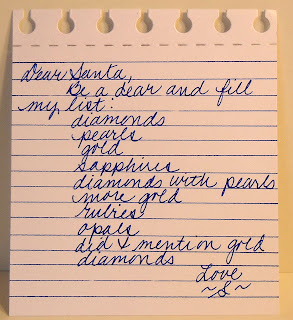 Dear Santa,
Be a dear and fill
my list:
diamonds
pearls
gold
sapphires
diamonds with pearls
more gold
rubies
opals
did I mention gold
diamonds
Love
~S~